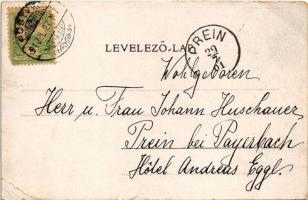 LEVELEZŐ-LA
PREIN
29
Wohlgeboren
Herr u. Frau Johann Huschauer
Prein bei Payerbach
Hôtel Andreas Eggl.